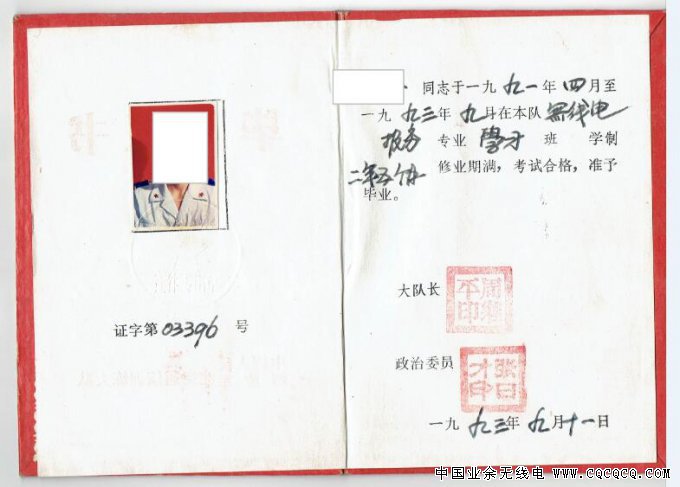 证字第03396号
同志于一九九一年四月至
一九九三年九月在本队无线电
报务专业学习班 学制
二年五个月 修业期满，考试合格，准予
毕业。
大队长
政治委员
一九九三年九月十一日
中国业余无线电 www.cqcqcq.com